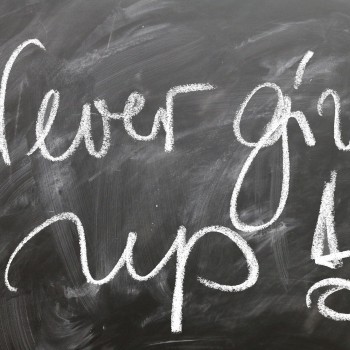 Never giv
up!